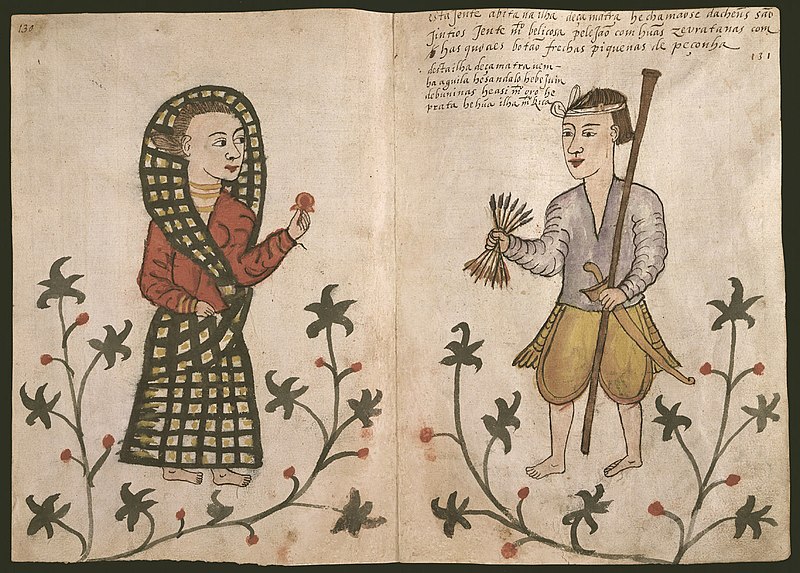 130
esta Jente abita na ilha deçamatra he chamaose dachens são
Jintios Jente mͦ belicosa pelejão com hũas zevratanas com
has quoaes botão frechas piquenas de peçonha
131
desta ilha deçamatra vem
ha aguila he sandalo he beJuin
de buninas he asi mͦ oro he
prata he hũa ilha mͭ Rica